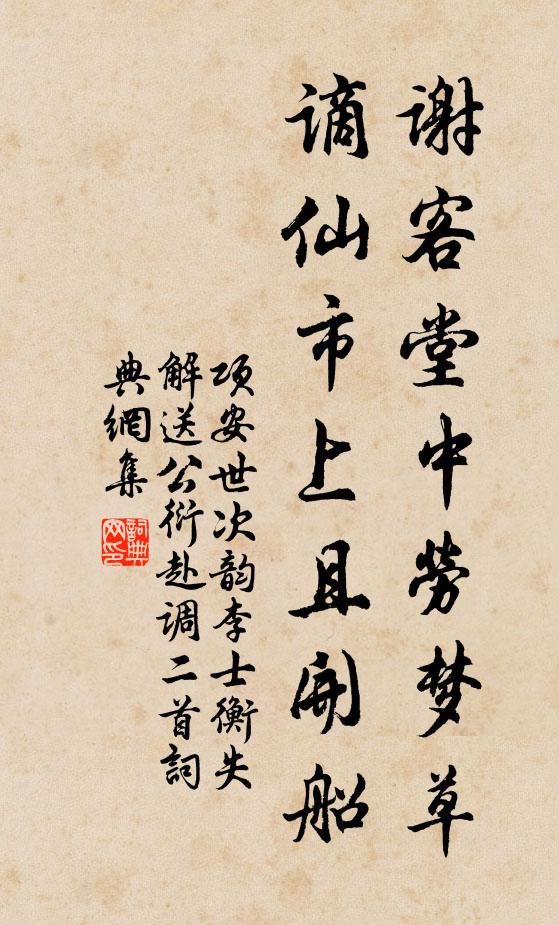 谢客堂中劳梦草
谪仙市上且開船
项安世次韵李士衡失
解送公衍赴调二首詞
典網集
詞典
网印